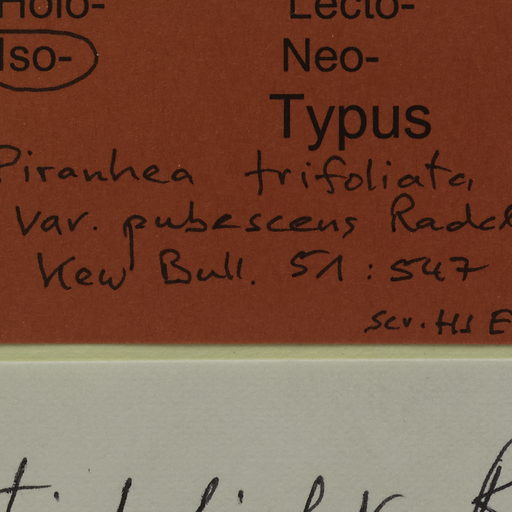 Holo- Lecto-
Iso- Neo-
Typus
Piranhea trifoliata
var. pubescens Radcl
Kew Bull. 51:547
scr. HJ E